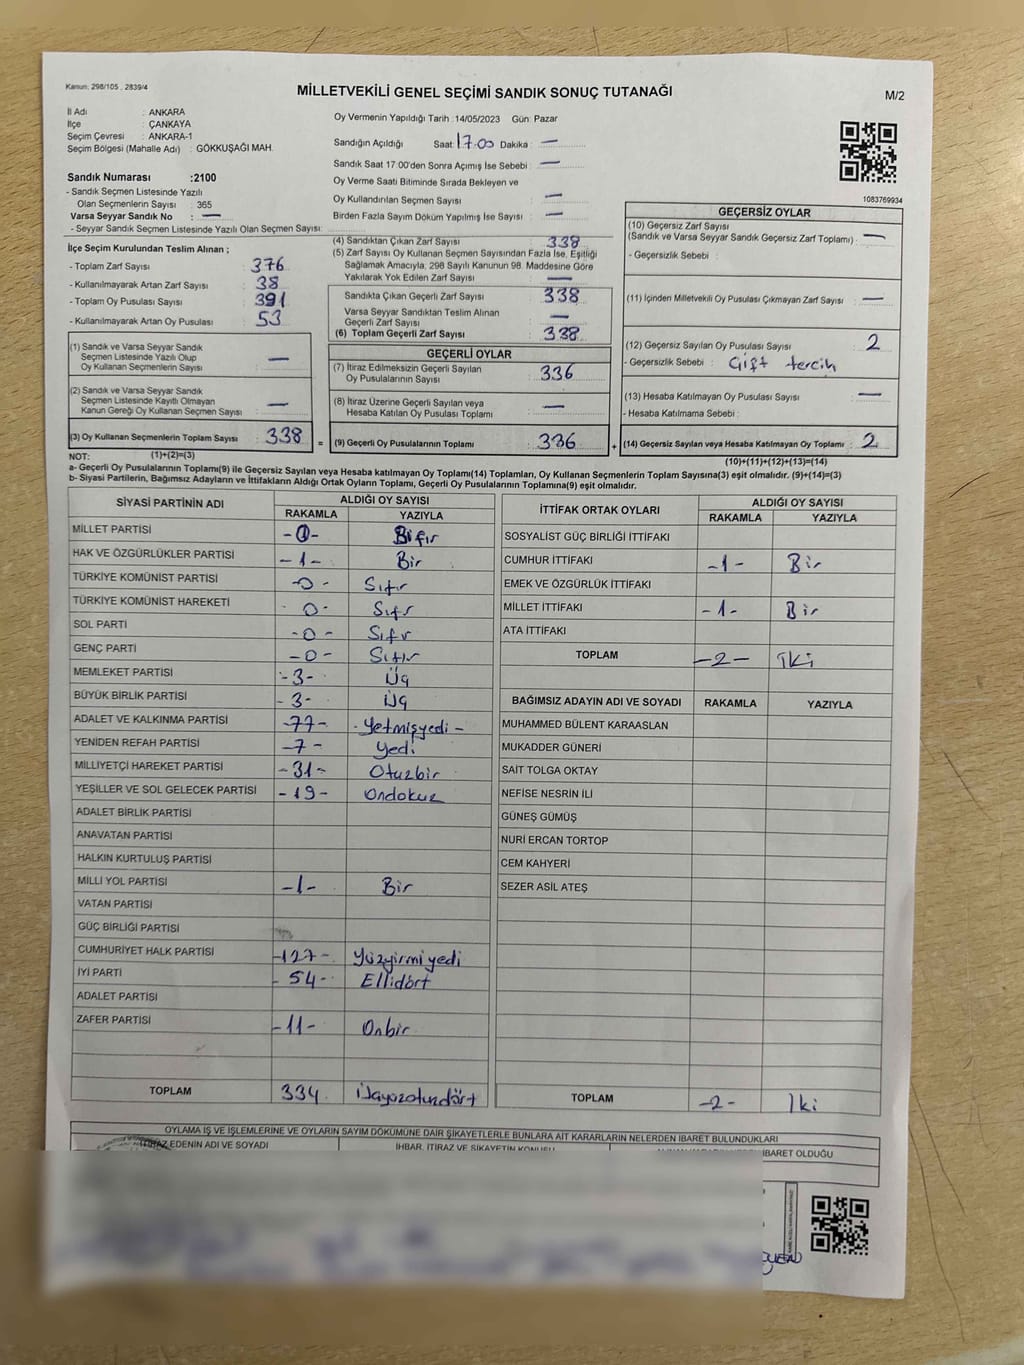 Kanun: 298/105 , 2839/4
MİLLETVEKİLİ GENEL SEÇİMİ SANDIK SONUÇ TUTANAĞI
M/2
İl Adı : ANKARA
İlçe : ÇANKAYA
Seçim Çevresi : ANKARA-1
Seçim Bölgesi (Mahalle Adı) : GÖKKUŞAĞI MAH.
Oy Vermenin Yapıldığı Tarih :14/05/2023 Gün: Pazar
Sandığın Açıldığı Saat: 17.00 Dakika : —
Sandık Saat 17:00'den Sonra Açımış İse Sebebi : —
Oy Verme Saati Bitiminde Sırada Bekleyen ve
Oy Kullandırılan Seçmen Sayısı —
Birden Fazla Sayım Döküm Yapılmış İse Sayısı : —
1083769934
Sandık Numarası :2100
- Sandık Seçmen Listesinde Yazılı
Olan Seçmenlerin Sayısı : 365
Varsa Seyyar Sandık No : —
- Seyyar Sandık Seçmen Listesinde Yazılı Olan Seçmen Sayısı:
İlçe Seçim Kurulundan Teslim Alınan ;
- Toplam Zarf Sayısı : 376
- Kullanılmayarak Artan Zarf Sayısı : 38
- Toplam Oy Pusulası Sayısı : 391
- Kullanılmayarak Artan Oy Pusulası : 53
(1) Sandık ve Varsa Seyyar Sandık
Seçmen Listesinde Yazılı Olup
Oy Kullanan Seçmenlerin Sayısı : —
(2) Sandık ve Varsa Seyyar Sandık
Seçmen Listesinde Kayıtlı Olmayan
Kanun Gereği Oy Kullanan Seçmen Sayısı : —
(3) Oy Kullanan Seçmenlerin Toplam Sayısı : 338 =
(1)+(2)=(3)
(4) Sandıktan Çıkan Zarf Sayısı : 338
(5) Zarf Sayısı Oy Kullanan Seçmen Sayısından Fazla İse, Eşitliği
Sağlamak Amacıyla, 298 Sayılı Kanunun 98. Maddesine Göre
Yakılarak Yok Edilen Zarf Sayısı : —
Sandıkta Çıkan Geçerli Zarf Sayısı : 338
Varsa Seyyar Sandıktan Teslim Alınan
Geçerli Zarf Sayısı : —
(6) Toplam Geçerli Zarf Sayısı : 338
GEÇERLİ OYLAR
(7) İtiraz Edilmeksizin Geçerli Sayılan
Oy Pusulalarının Sayısı : 336
(8) İtiraz Üzerine Geçerli Sayılan veya
Hesaba Katılan Oy Pusulası Toplamı : —
(9) Geçerli Oy Pusulalarının Toplamı : 336 +
GEÇERSİZ OYLAR
(10) Geçersiz Zarf Sayısı
(Sandık ve Varsa Seyyar Sandık Geçersiz Zarf Toplamı) : —
- Geçersizlik Sebebi :
(11) İçinden Milletvekili Oy Pusulası Çıkmayan Zarf Sayısı : —
(12) Geçersiz Sayılan Oy Pusulası Sayısı : 2
- Geçersizlik Sebebi : Çift tercih
(13) Hesaba Katılmayan Oy Pusulası Sayısı : —
- Hesaba Katılmama Sebebi :
(14) Geçersiz Sayılan veya Hesaba Katılmayan Oy Toplamı : 2
(10)+(11)+(12)+(13)=(14)
NOT:
a- Geçerli Oy Pusulalarının Toplamı(9) ile Geçersiz Sayılan veya Hesaba katılmayan Oy Toplamı(14) Toplamları, Oy Kullanan Seçmenlerin Toplam Sayısına(3) eşit olmalıdır. (9)+(14)=(3)
b- Siyasi Partilerin, Bağımsız Adayların ve İttifakların Aldığı Ortak Oyların Toplamı, Geçerli Oy Pusulalarının Toplamına(9) eşit olmalıdır.
SİYASİ PARTİNİN ADI ALDIĞI OY SAYISI
RAKAMLA YAZIYLA
MİLLET PARTİSİ -0-
HAK VE ÖZGÜRLÜKLER PARTİSİ -1- Bir
TÜRKİYE KOMÜNİST PARTİSİ -0- Sıfır
TÜRKİYE KOMÜNİST HAREKETİ 0- Sıfr
SOL PARTİ -0- Sıfr
GENÇ PARTİ -0- Sıfır
MEMLEKET PARTİSİ -3- Üç
BÜYÜK BİRLİK PARTİSİ -3- Üç
ADALET VE KALKINMA PARTİSİ -77- -Yetmişyedi-
YENİDEN REFAH PARTİSİ -7- Yedi
MİLLİYETÇİ HAREKET PARTİSİ -31- Otuzbir
YEŞİLLER VE SOL GELECEK PARTİSİ -19- Ondokuz
ADALET BİRLİK PARTİSİ
ANAVATAN PARTİSİ
HALKIN KURTULUŞ PARTİSİ
MİLLİ YOL PARTİSİ -1- Bir
VATAN PARTİSİ
GÜÇ BİRLİĞİ PARTİSİ
CUMHURİYET HALK PARTİSİ -127- Yüzyirmiyedi
İYİ PARTİ -54- Ellidört
ADALET PARTİSİ
ZAFER PARTİSİ -11- Onbir
TOPLAM 334
İTTİFAK ORTAK OYLARI ALDIĞI OY SAYISI
RAKAMLA YAZIYLA
SOSYALİST GÜÇ BİRLİĞİ İTTİFAKI
CUMHUR İTTİFAKI -1- Bir
EMEK VE ÖZGÜRLÜK İTTİFAKI
MİLLET İTTİFAKI -1- Bir
ATA İTTİFAKI
TOPLAM -2- İki
BAĞIMSIZ ADAYIN ADI VE SOYADI RAKAMLA YAZIYLA
MUHAMMED BÜLENT KARAASLAN
MUKADDER GÜNERİ
SAİT TOLGA OKTAY
NEFİSE NESRİN İLİ
GÜNEŞ GÜMÜŞ
NURİ ERCAN TORTOP
CEM KAHYERİ
SEZER ASİL ATEŞ
TOPLAM -2- İki
OYLAMA İŞ VE İŞLEMLERİNE VE OYLARIN SAYIM DÖKÜMÜNE DAİR ŞİKAYETLERLE BUNLARA AİT KARARLARIN NELERDEN İBARET BULUNDUKLARI
İTİRAZ EDENİN ADI VE SOYADI İHBAR, İTİRAZ VE ŞİKAYETİN KONUSU İBARET OLDUĞU